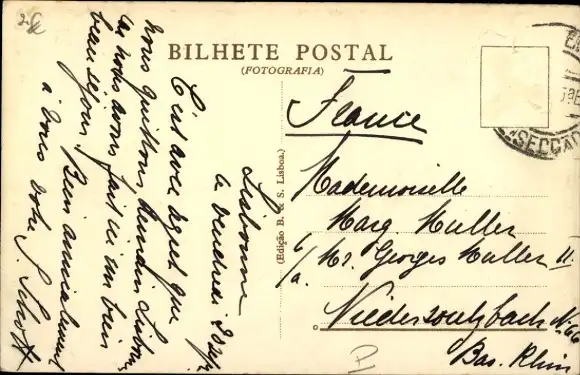 BILHETE POSTAL
(FOTOGRAFIA)
Lisbonne
le Vendredi
C'est avec regret que
nous quittons demain Lisbonne
où nous avons fait un bien
beau séjour. Bien amicalement
à vous votre S. Schott
(Edição B. & S. Lisboa.)
France
Mademoiselle
Marg. Muller
Mr. Georges Muller II
Niedersoultzbach N. 66
Bas. Rhin
SECÇÃO